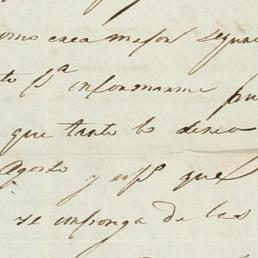 como crea mejor segun
to pª informarme pu
que tanto lo desea
Agosto y espº que
se imponga de las